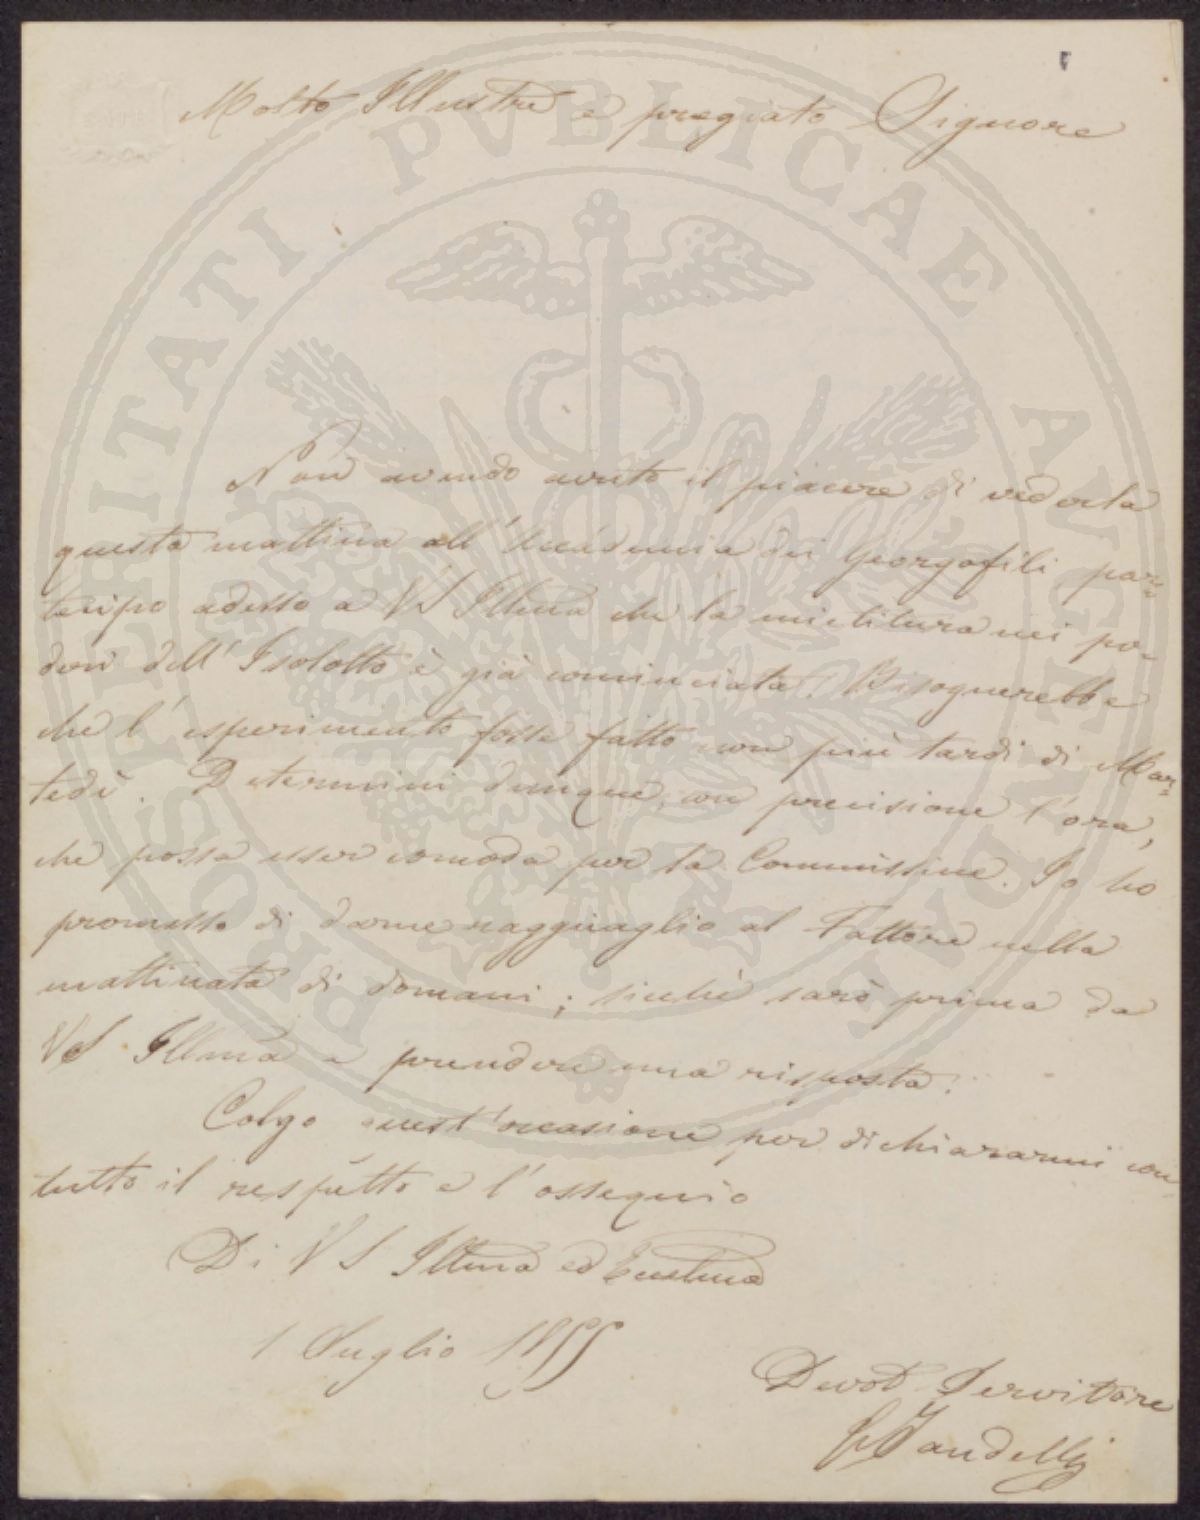 Molto Illustre e pregiato Signore
Non avendo avuto il piacere di vederla
questa mattina all'Accademia dei Georgofili par=
tecipo adesso a VS Illma che la mietitura nei po=
deri dell'Isolotto è già cominciata. Bisognerebbe
che l'esperimento fosse fatto non più tardi di Mar=
tedì. Determini dunque con precisione l'ora,
che possa esser comoda per la Commissione. Io ho
promesso di darne ragguaglio al Fattore nella
mattinata di domani; sicché sarò prima da
VS Illma a prendere una risposta.
Colgo quest'occasione per dichiararmi con
tutto il rispetto e l'ossequio
Di VS Illma ed Eccellma
1 Luglio 1855
Devot Servitore
PROSPERITATI PVBLICAE AVGENDAE